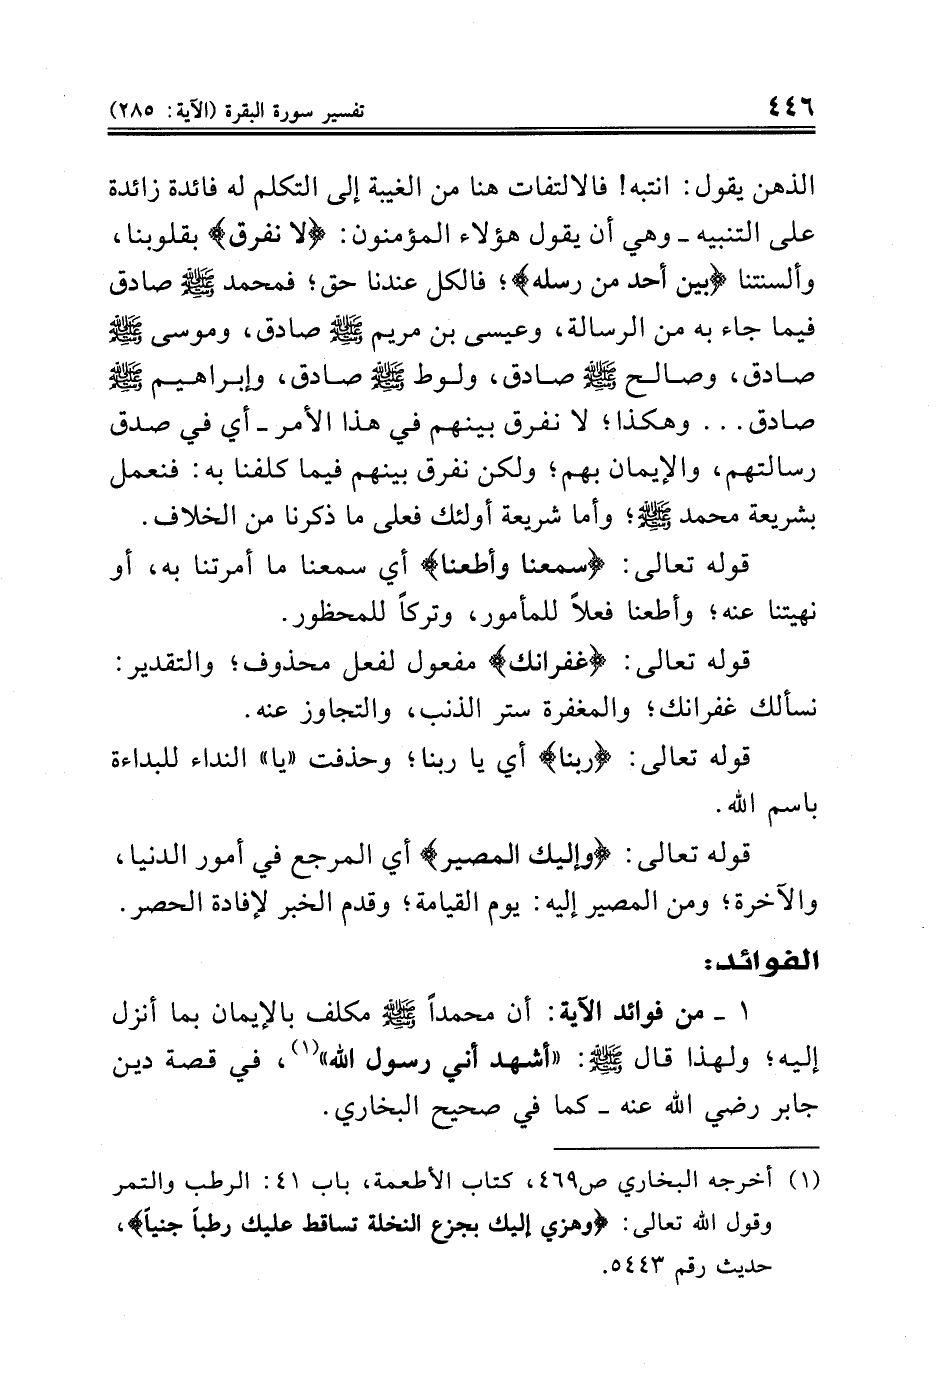 ٤٤٦ تفسير سورة البقرة (الآية: ٢٨٥)
الذهن يقول: انتبه! فالالتفات هنا من الغيبة إلى التكلم له فائدة زائدة
على التنبيه ـ وهي أن يقول هؤلاء المؤمنون: ﴿لا نفرق﴾ بقلوبنا،
وألسنتنا ﴿بين أحد من رسله﴾؛ فالكل عندنا حق؛ فمحمد ﷺ صادق
فيما جاء به من الرسالة، وعيسى بن مريم ﷺ صادق، وموسى ﷺ
صادق، وصالح ﷺ صادق، ولوط ﷺ صادق، وإبراهيم ﷺ
صادق... وهكذا؛ لا نفرق بينهم في هذا الأمر ـ أي في صدق
رسالتهم، والإيمان بهم؛ ولكن نفرق بينهم فيما كلفنا به: فنعمل
بشريعة محمد ﷺ؛ وأما شريعة أولئك فعلى ما ذكرنا من الخلاف.
قوله تعالى: ﴿سمعنا وأطعنا﴾ أي سمعنا ما أمرتنا به، أو
نهيتنا عنه؛ وأطعنا فعلاً للمأمور، وتركاً للمحظور.
قوله تعالى: ﴿غفرانك﴾ مفعول لفعل محذوف؛ والتقدير:
نسألك غفرانك؛ والمغفرة ستر الذنب، والتجاوز عنه.
قوله تعالى: ﴿ربنا﴾ أي يا ربنا؛ وحذفت «يا» النداء للبداءة
باسم الله.
قوله تعالى: ﴿وإليك المصير﴾ أي المرجع في أمور الدنيا،
والآخرة؛ ومن المصير إليه: يوم القيامة؛ وقدم الخبر لإفادة الحصر.
الفوائد:
١ ـ من فوائد الآية: أن محمداً ﷺ مكلف بالإيمان بما أنزل
إليه؛ ولهذا قال ﷺ: «أشهد أني رسول الله»(١)، في قصة دين
جابر رضي الله عنه ـ كما في صحيح البخاري.
(١) أخرجه البخاري ص٤٦٩، كتاب الأطعمة، باب ٤١: الرطب والتمر
وقول الله تعالى: ﴿وهزي إليك بجزع النخلة تساقط عليك رطباً جنياً﴾،
حديث رقم ٥٤٤٣.